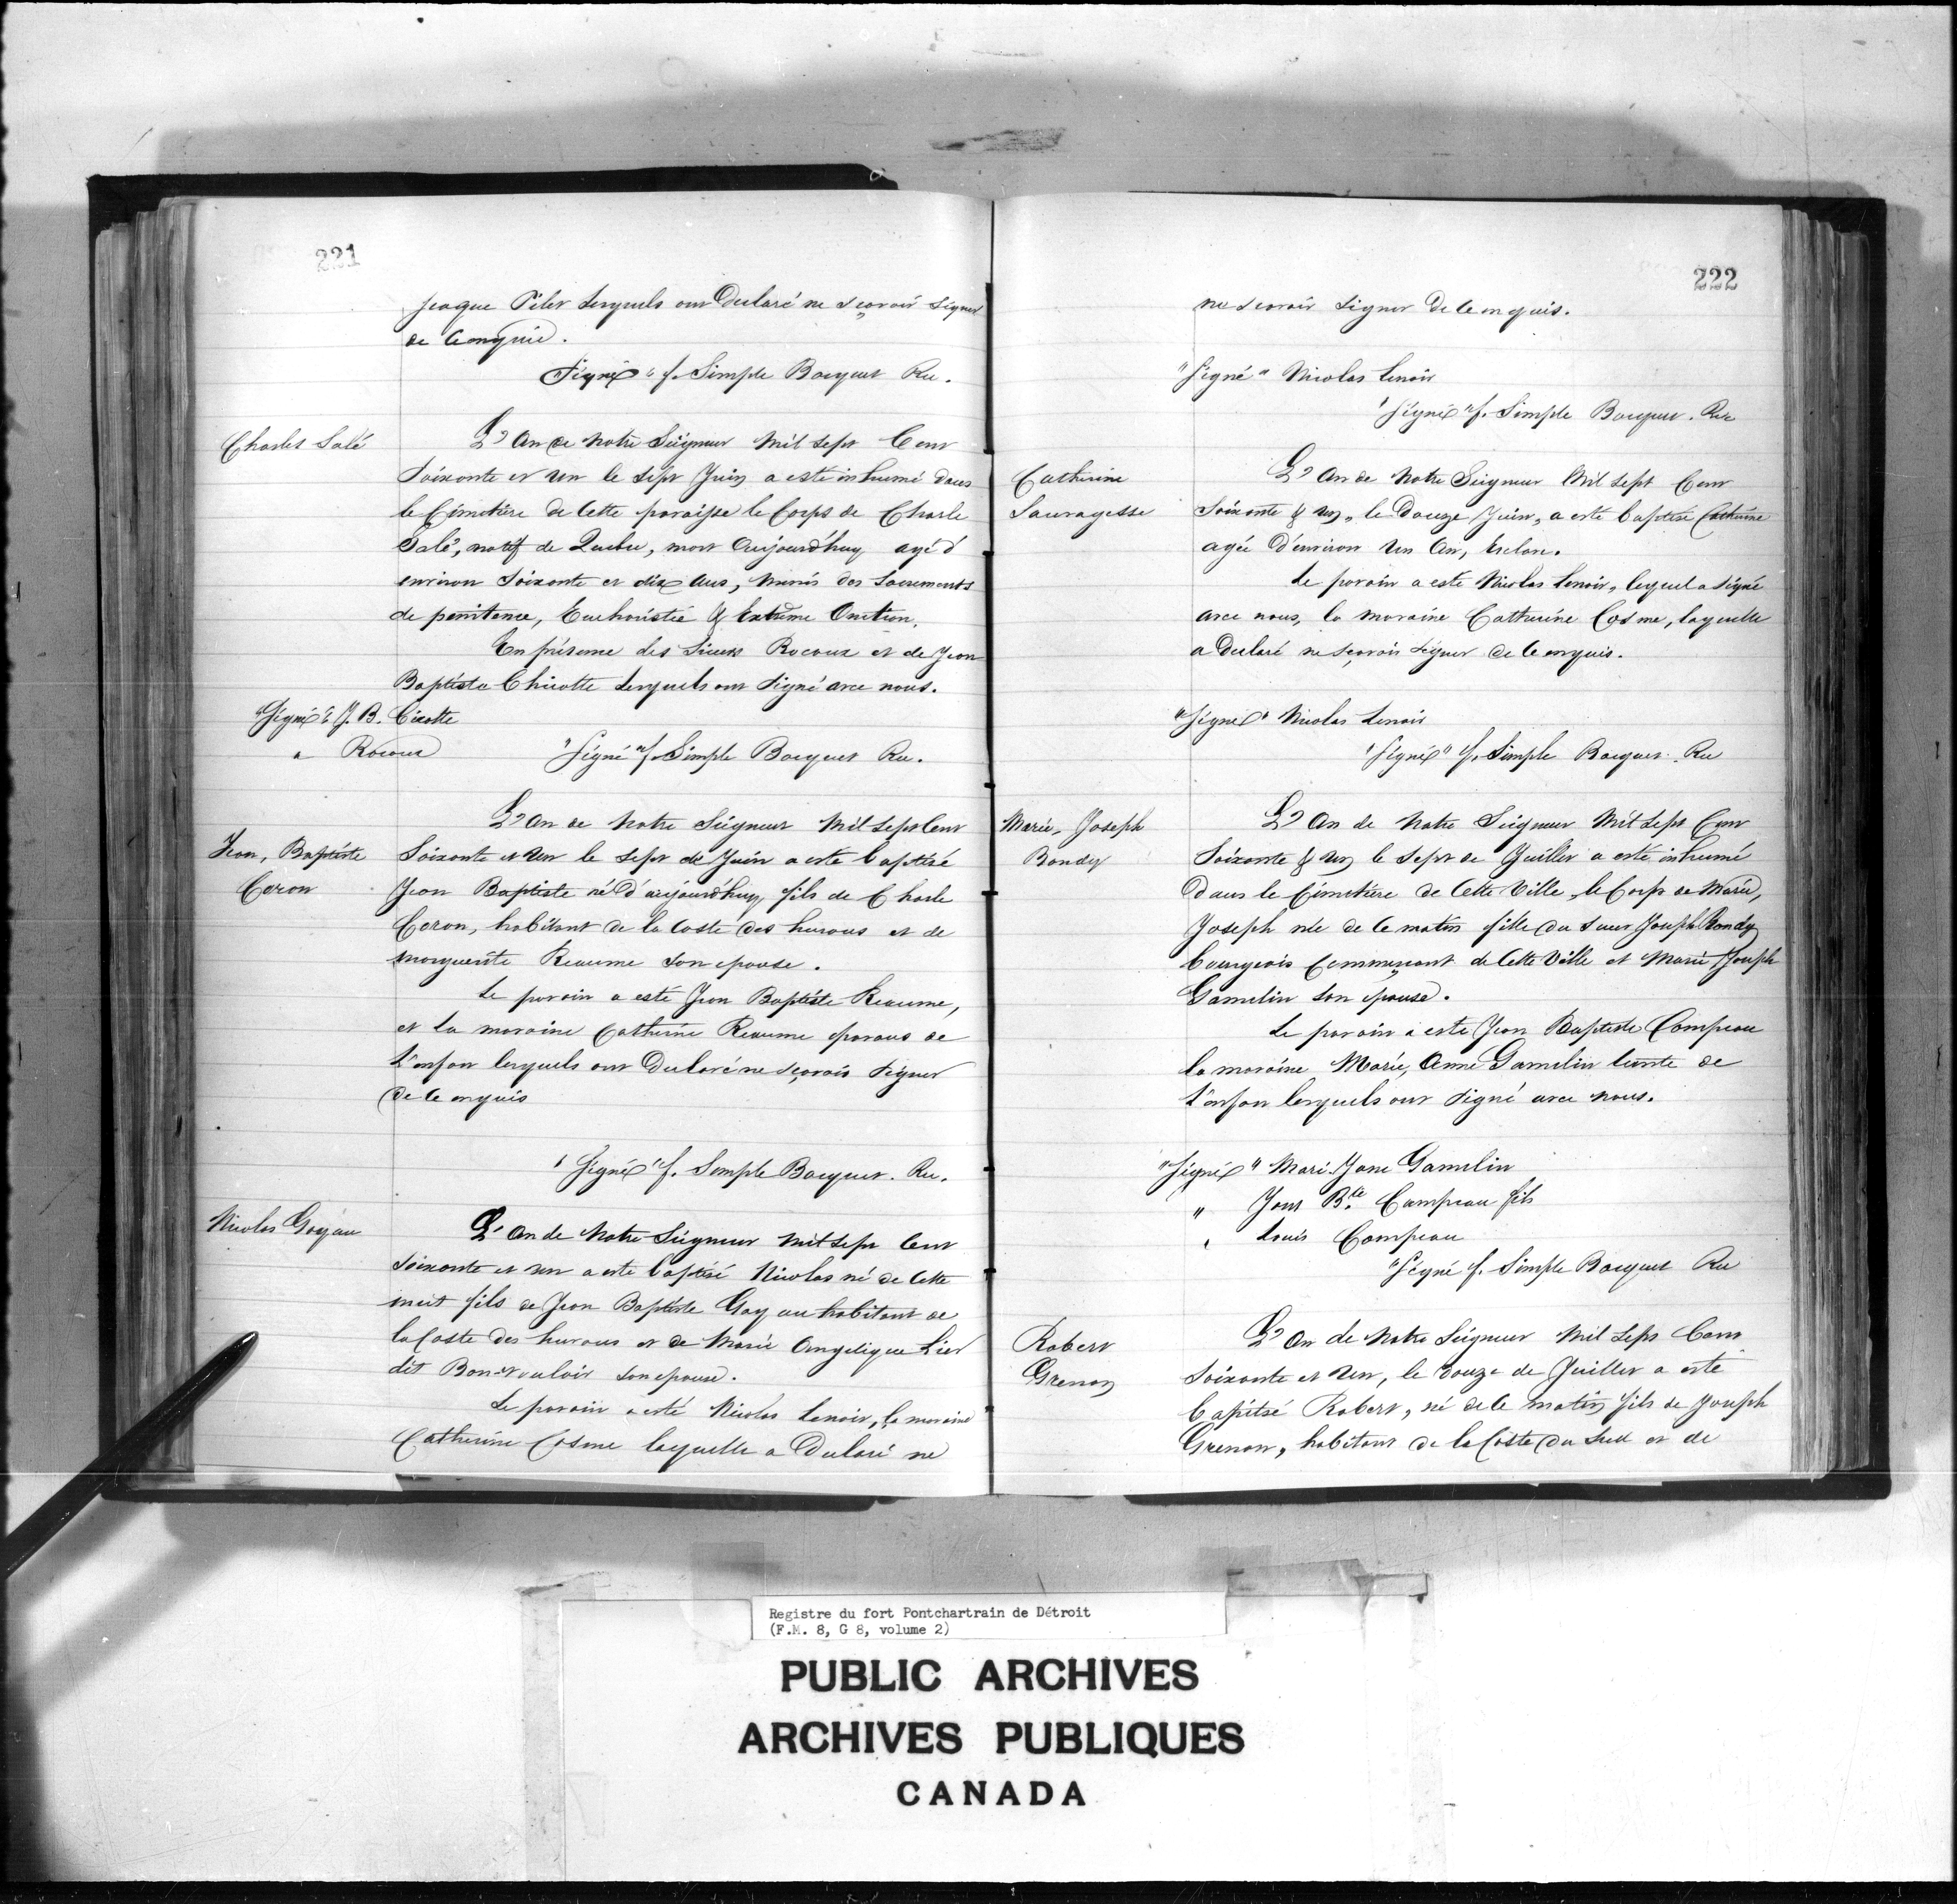 221
Jeaque Pilet Lesquels ont Declaré ne sçavoir signer
de ce enquis.
"Signé" f. Simple Bocquet Rec.
Charles Salé
L'An de Notre Seigneur Mil sept Cent
Soixante et un le sept Juin a esté inhumé dans
le Cimetière de Cette paroisse le Corps de Charle
Salé, natif de Quebec, mort Aujourd'huy agé d'
environ Soixante et dix ans, Munis des Sacrements
de penitence, Eucharistie & Extrême Onction.
En présence des Sieurs Rocoux et de Jean
Baptiste Chicotte Lesquels ont signé avec nous.
"Signé" J. B. Cicotte
" Rocoux
"Signé" f. Simple Bocquet Rec.
Jean, Baptiste
Coron
L'An de Notre Seigneur Mil sept Cent
Soixante et un le sept de Juin a esté baptisé
Jean Baptiste né d'aujourd'huy, fils de Charle
Coron, habitant de la Coste des hurons et de
Marguerite Reaume son epouse.
Le parain a esté Jean Baptiste Reaume,
et la maraine Catherine Reaume parans de
l'enfan lesquels ont Declaré ne sçavoir signer
de ce enquis
"Signé" f. Simple Bocquet. Rec.
Nicolas Goyau
L'An de Notre Seigneur Mil sept Cent
Soixante et un a esté baptisé Nicolas né de Cette
nuit fils de Jean Baptiste Goyau habitant de
la Coste des hurons et de Marie Angelique
dit Bonvouloir son epouse.
Le parain a esté Nicolas Lenoir, la maraine
Catherine Cosme laquelle a Declaré ne
222
ne scavoir signer de ce enquis.
"Signé" Nicolas Lenoir
"Signé" f. Simple Bocquet. Rec
Catherine
Sauvagesse
L'An de Notre Seigneur Mil sept Cent
Soixante & un, le Douze Juin, a esté baptisé Catherine
agée D'environ un An, Esclave.
Le parain a esté Nicolas Lenoir, lequel a signé
avec nous, la maraine Catherine Cosme, laquelle
a Declaré ne sçavoir signer de ce enquis.
"Signé" Nicolas Lenoir
"Signé" f. Simple Bocquet. Rec
Marie, Joseph
Bondy
L'An de Notre Seigneur Mil sept Cent
Soixante & un le sept de Juillet a esté inhumé
dans le Cimetière de Cette Ville, le Corps de Marie,
Joseph née de ce matin fille du sieur Joseph Bondy
bourgeois Commerçant de Cette Ville et Marie Joseph
Gamelin son epouse.
Le parain a esté Jean Baptiste Campeau
la maraine Marie, Anne Gamelin tante de
l'enfan lesquels ont signé avec nous.
"Signé" Mari. Jane Gamelin
" Jean Bte. Campeau fils
" Louis Campeau
"Signé f. Simple Bocquet Rec
Robert
Grenon
L'An de Notre Seigneur Mil sept Cent
Soixante et un, le Douze de Juillet a esté
bapitsé Robert, né de ce matin fils de Joseph
Grenon, habitant de la Coste du Sud et de
Registre du fort Pontchartrain de Détroit
(F.M. 8, G 8, volume 2)
PUBLIC ARCHIVES
ARCHIVES PUBLIQUES
CANADA